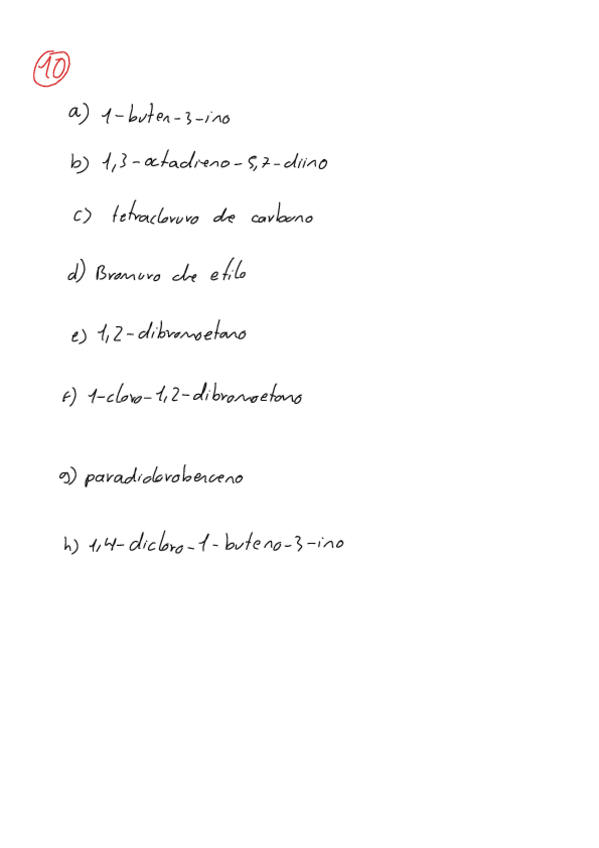 10
a) 1-buten-3-ino
b) 1,3-octadieno-5,7-diino
c) tetracloruro de carbono
d) Bromuro de etilo
e) 1,2-dibromoetano
f) 1-cloro-1,2-dibromoetano
g) paradiclorobenceno
h) 1,4-dicloro-1-buteno-3-ino